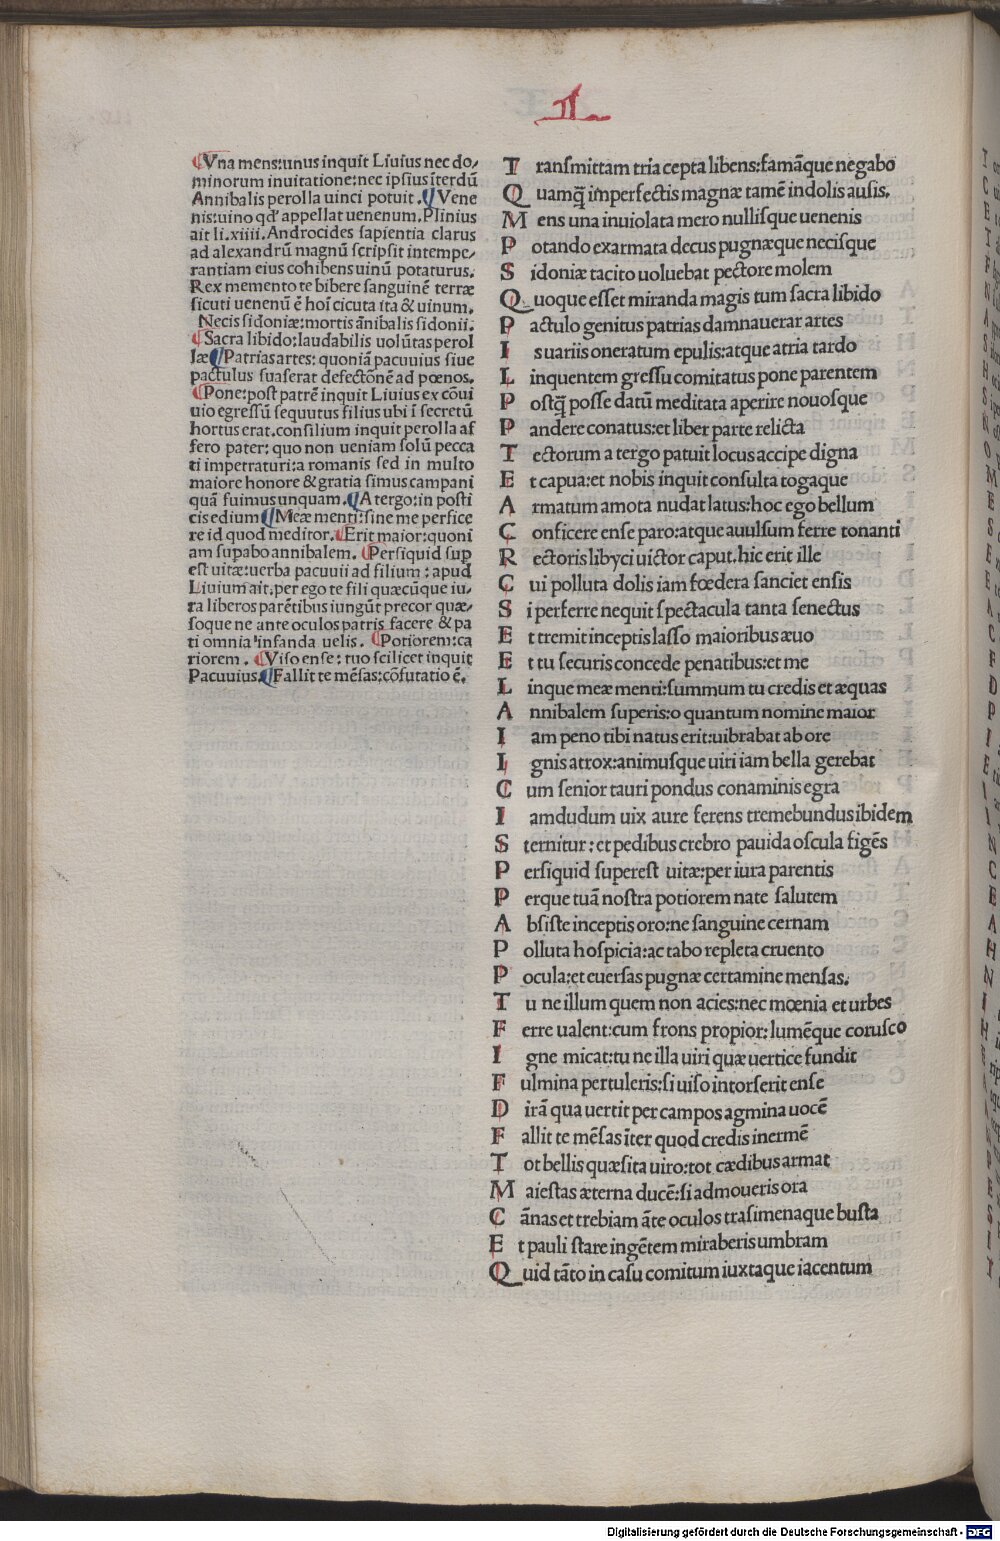 ¶Vna mens:unus inquit Liuius nec do/
minorum inuitatione:nec ipsius ĩterdũ
Annibalis perolla uinci potuit.¶Vene
nis:uino qd' appellat uenenum.Plinius
ait li.xiiii.Androcides sapientia clarus
ad alexandrũ magnũ scripsit intempe/
rantiam eius cohibens uinũ potaturus.
Rex memento te bibere sanguinẽ terræ
sicuti uenenũ ẽ hoĩ cicuta ita & uinum.
Necis sidoniæ:mortis ãnibalis sidonii.
¶Sacra libido:laudabilis uolũtas perol
læ¶Patrias artes:quoniã pacuuius siue
pactulus suaserat defectõnẽ ad pœnos.
¶Pone:post patrẽ inquit Liuius ex cõui
uio egressũ sequutus filius ubi ĩ secretũ
hortus erat.consilium inquit perolla af
fero pater:quo non ueniam solũ pecca
ti impetraturi:a romanis sed in multo
maiore honore & gratia simus campani
quã fuimus unquam.¶A tergo:in posti
cis edium¶Meæ menti:sine me perfice
re id quod meditor.¶Erit maior:quoni
am supabo annibalem.¶Persiquid sup
est uitæ:uerba pacuuii ad filium:apud
Liuium ait.per ego te fili quæcũque iu/
ra liberos parẽtibus iungũt precor quæ/
soque ne ante oculos patris facere & pa
ti omnia infanda uelis.¶Potiorem:ca
riorem.¶Viso ense:tuo scilicet inquit
Pacuuius.¶Fallit te mẽsas:cõfutatio ẽ.
II
T ransmittam tria cepta libens:famãque negabo
Q uamq̃ imperfectis magnæ tamẽ indolis ausis.
M ens una inuiolata mero nullisque uenenis
P otando exarmata decus pugnæque necisque
S idoniæ tacito uoluebat pectore molem
Q uoque esset miranda magis tum sacra libido
P actulo genitus patrias damnauerar artes
I s uariis oneratum epulis:atque atria tardo
L inquentem gressu comitatus pone parentem
P ostq̃ posse datũ meditata aperire nouosque
P andere conatus:et liber parte relicta
T ectorum a tergo patuit locus accipe digna
E t capua:et nobis inquit consulta togaque
A rmatum amota nudat latus:hoc ego bellum
C onficere ense paro:atque auulsum ferre tonanti
R ectoris libyci uictor caput.hic erit ille
C ui polluta dolis iam fœdera sanciet ensis
S i perferre nequit spectacula tanta senectus
E t tremit inceptis lasso maioribus æuo
E t tu securis concede penatibus:et me
L inque meæ menti:summum tu credis et æquas
A nnibalem superis:o quantum nomine maior
I am peno tibi natus erit:uibrabat ab ore
I gnis atrox:animusque uiri iam bella gerebat
C um senior tauri pondus conaminis egra
I amdudum uix aure ferens tremebundus ibidem
S ternitur:et pedibus crebro pauida oscula figẽs
P ersiquid superest uitæ:per iura parentis
P erque tuã nostra potiorem nate salutem
A bsiste inceptis oro:ne sanguine cernam
P olluta hospicia:ac tabo repleta cruento
P ocula:et euersas pugnæ certamine mensas.
T u ne illum quem non acies:nec mœnia et urbes
F erre ualent:cum frons propior:lumẽque corusco
I gne micat:tu ne illa uiri quæ uertice fundit
F ulmina pertuleris:si uiso intorserit ense
D irã qua uertit per campos agmina uocẽ
F allit te mẽsas ĩter quod credis inermẽ
T ot bellis quæsita uiro:tot cædibus armat
M aiestas æterna ducẽ:si admoueris ora
C ãnas et trebiam ãte oculos trasimenaque busta
E t pauli stare ingẽtem miraberis umbram
Q uid tãto in casu comitum iuxtaque iacentum
Digitalisierung gefördert durch die Deutsche Forschungsgemeinschaft - DFG